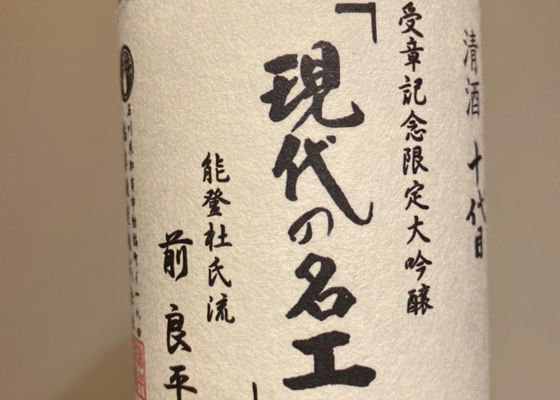 清酒 十代目
受章記念限定大吟醸
「現代の名工」
能登杜氏流
前良平